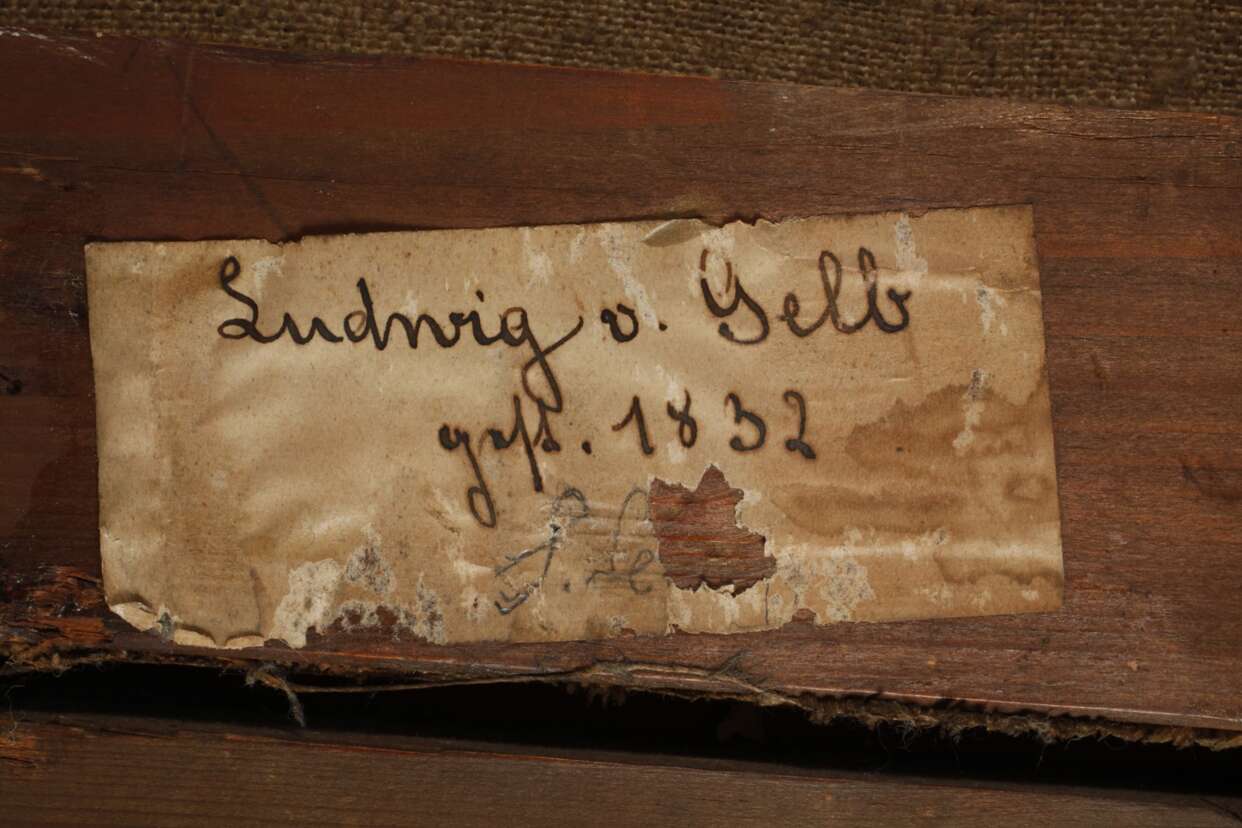 Ludwig v. Gelb
gest. 1832